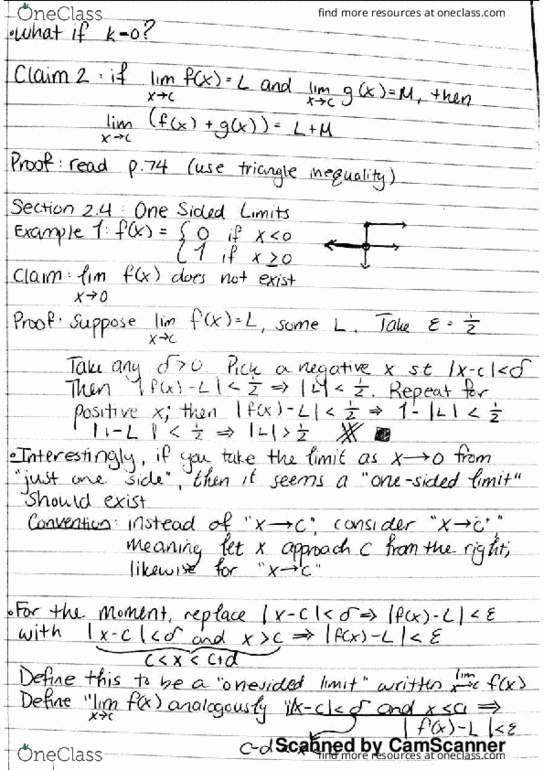 OneClass
find more resources at oneclass.com
•What if k=0?
Claim 2: if lim f(x)=L and lim g(x)=M, then
x→c x→c
lim (f(x)+g(x))=L+M
x→c
Proof: read p.74 (use triangle inequality)
Section 2.4: One Sided Limits
Example 1: f(x) = { 0 if x<0
{ 1 if x≥0
Claim: lim f(x) does not exist
x→0
Proof: Suppose lim f(x)=L, some L. Take ε=1/2
x→c
Take any δ>0. Pick a negative x st |x-c|<δ
Then |f(x)-L|<1/2 ⇒ |L|<1/2. Repeat for
positive x; then |f(x)-L|<1/2 ⇒ 1-|L|<1/2
|1-L|<1/2 ⇒ |L|>1/2
•Interestingly, if you take the limit as x→0 from
"just one side", then it seems a "one-sided limit"
should exist
Convention: instead of "x→c", consider "x→c⁺"
meaning let x approach c from the right;
likewise for "x→c⁻"
•For the moment, replace |x-c|<δ ⇒ |f(x)-L|<ε
with |x-c|<δ and x>c ⇒ |f(x)-L|<ε
c<x<c+d
Define this to be a "onesided limit" written lim f(x)
x→c
Define "lim f(x) analogously |x-c|<δ and x<c ⇒
x→c
|f(x)-L|<ε
c-d
Scanned by CamScanner
OneClass
find more resources at oneclass.com